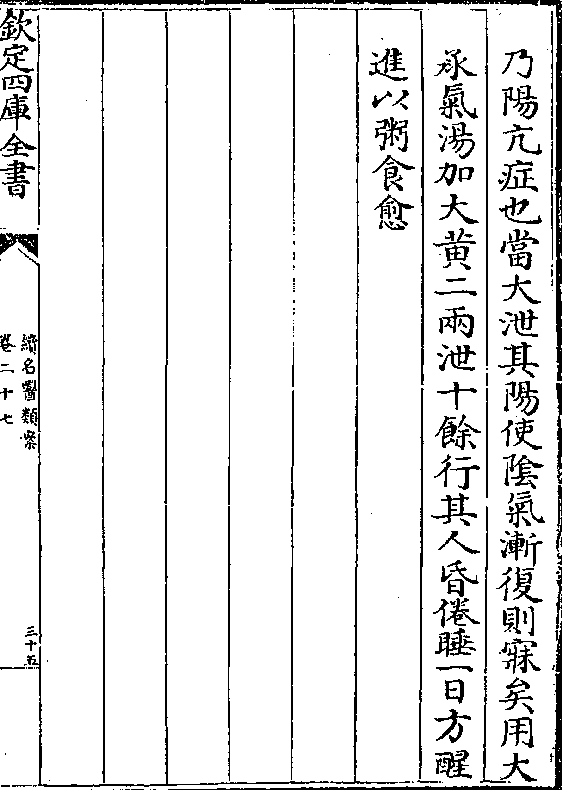 乃陽亢症也當大泄其陽使陰氣漸復則寐矣用大
承氣湯加大黄二兩泄十餘行其人昏倦睡一日方醒
進以粥食愈
欽定四庫全書
續名醫類案
卷二十七
三十五